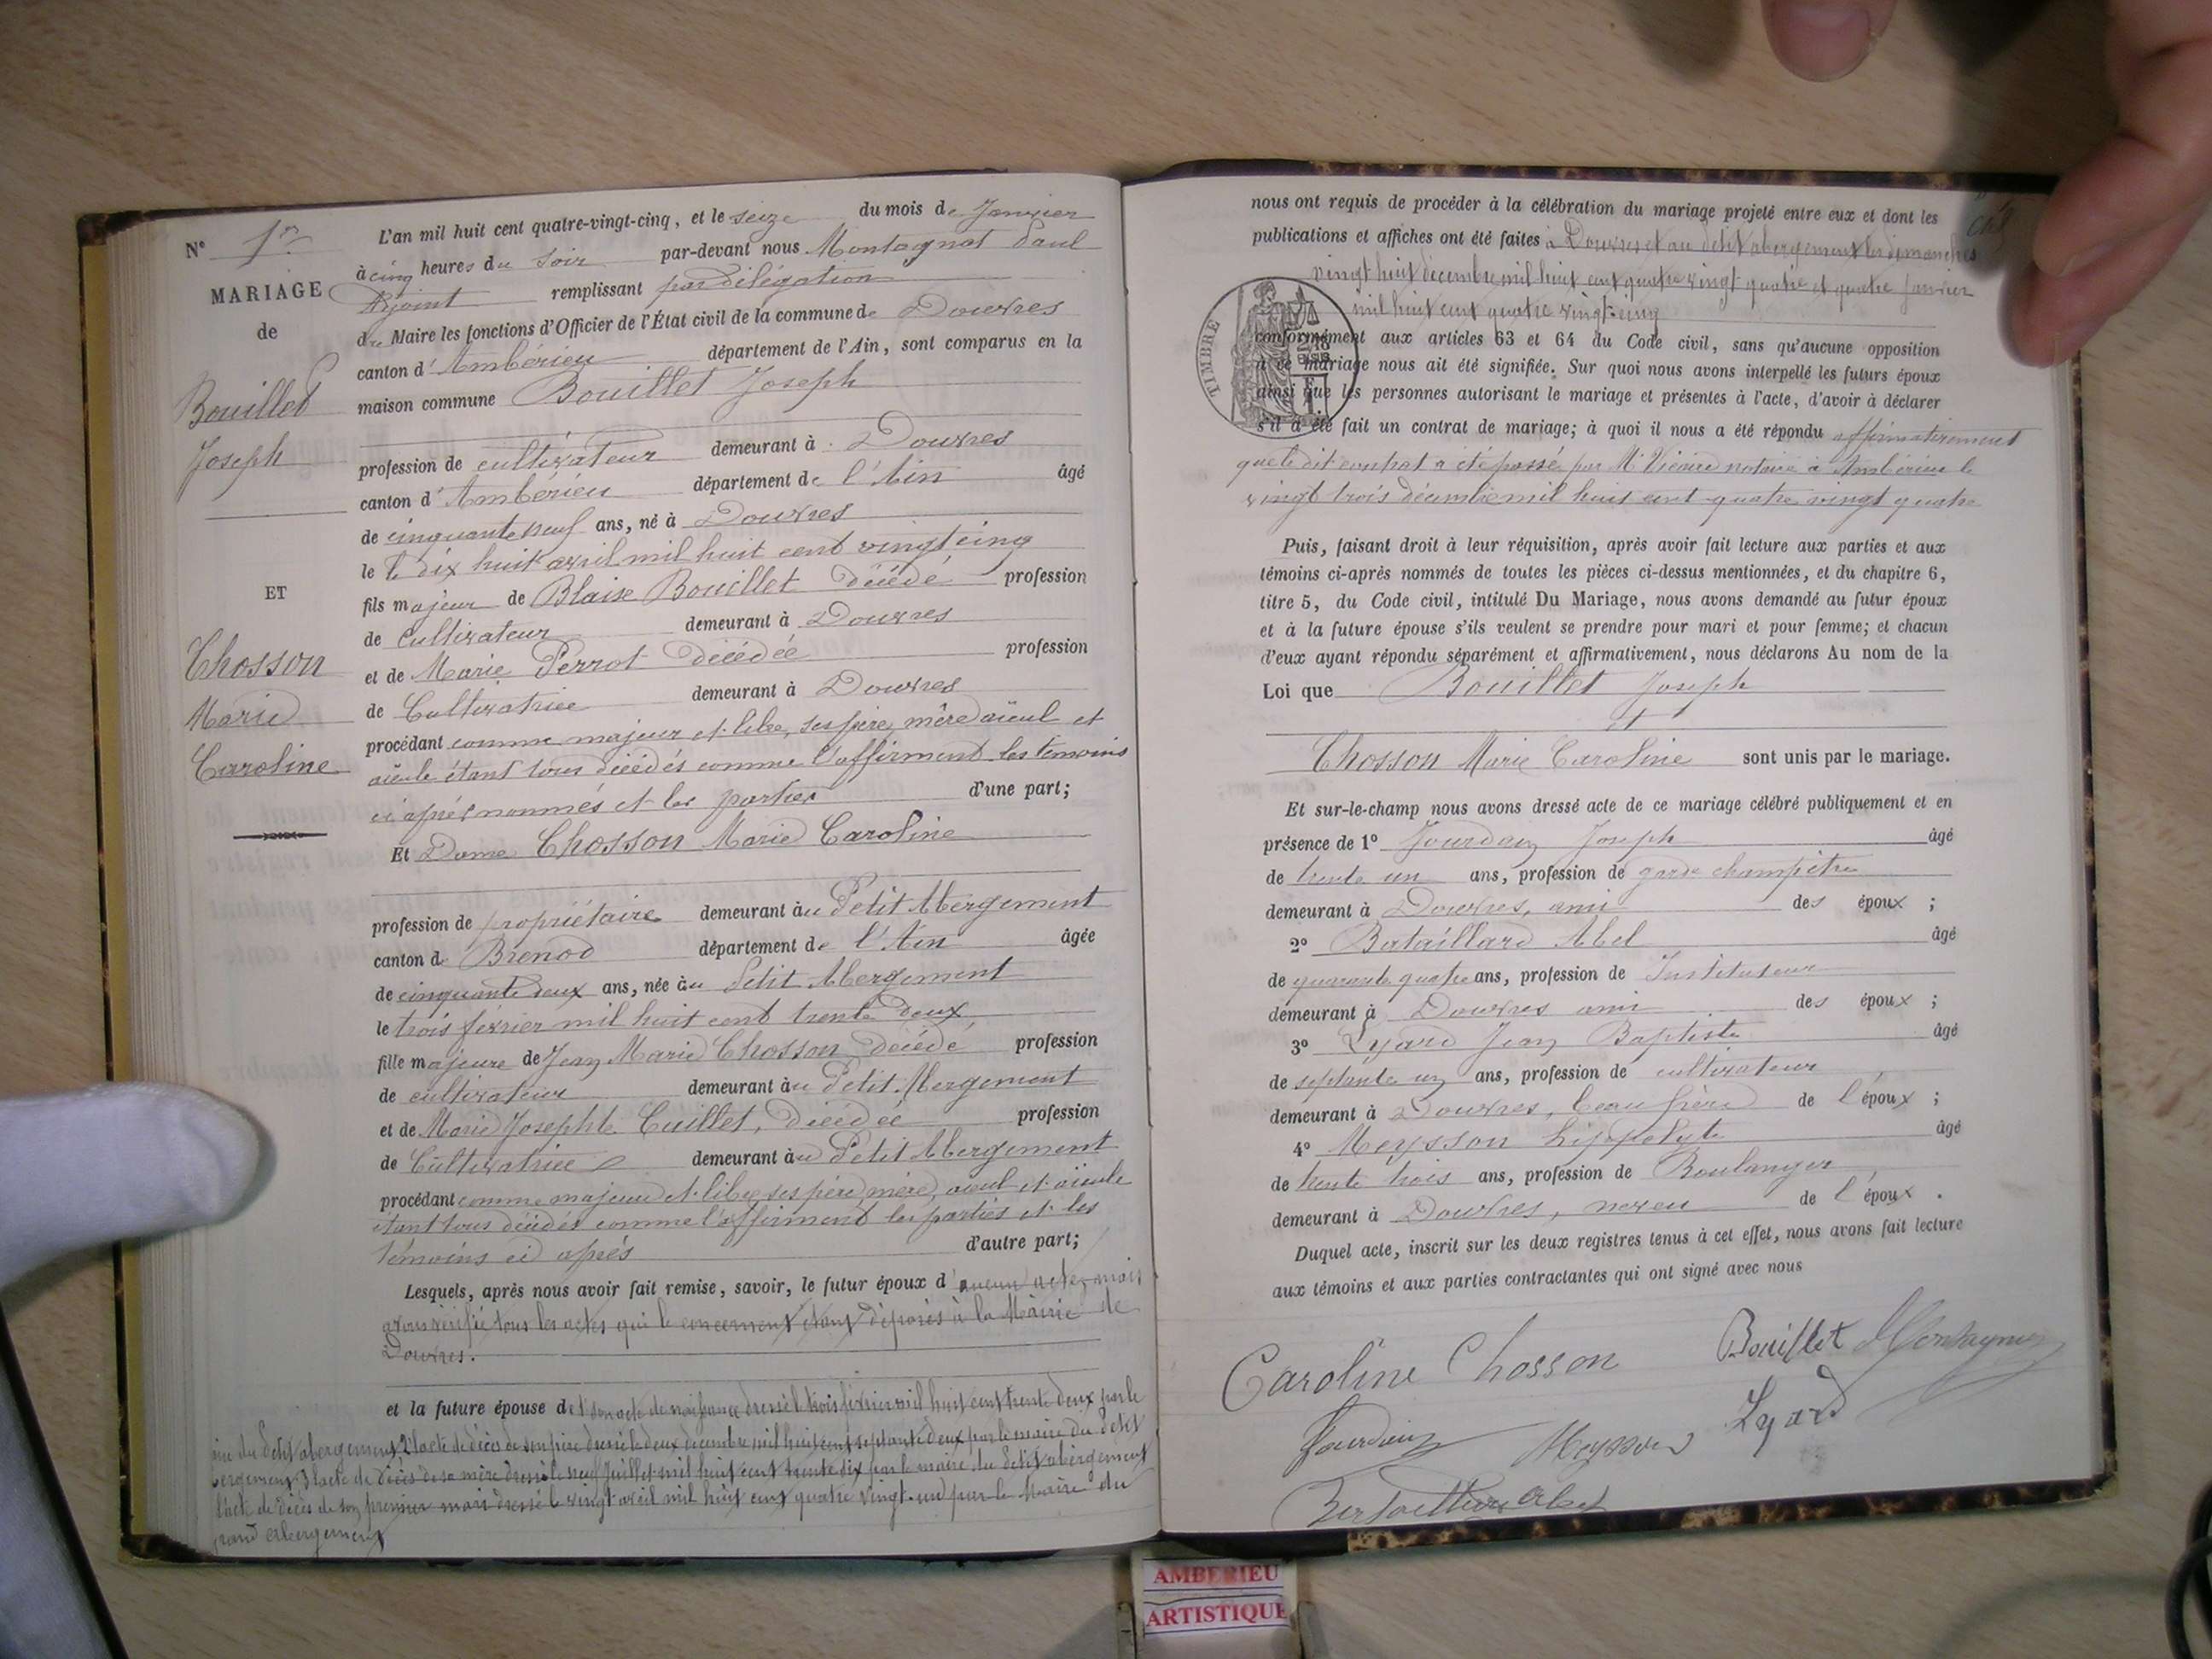 N° 1er
MARIAGE
de
Bouillet
Joseph
ET
Chosson
Marie
Caroline
L'an mil huit cent quatre-vingt-cinq, et le seize du mois de Janvier
à cinq heures du soir par-devant nous Montagnat Paul
Adjoint remplissant par délégation
du Maire les fonctions d'Officier de l'État civil de la commune de Douvres
canton d'Ambérieu département de l'Ain, sont comparus en la
maison commune Bouillet Joseph
profession de cultivateur demeurant à Douvres
canton d'Ambérieu département de l'Ain âgé
de cinquante neuf ans, né à Douvres
le le dix huit avril mil huit cent vingt cinq
fils majeur de Blaise Bouillet décédé profession
de cultivateur demeurant à Douvres
et de Marie Perrot décédée profession
de Cultivatrice demeurant à Douvres
procédant comme majeur et libre, ses père, mère aïeul et
aïeule étant tous décédés comme l'affirment les témoins
ci après nommés et les parties d'une part;
Et Dame Chosson Marie Caroline
profession de propriétaire demeurant au Petit Abergement
canton de Brenod département de l'Ain âgée
de cinquante deux ans, née au Petit Abergement
le trois février mil huit cent trente deux
fille majeure de Jean Marie Chosson décédé profession
de cultivateur demeurant au Petit Abergement
et de Marie Josephte Cuillet, décédée profession
de Cultivatrice demeurant au Petit Abergement
procédant comme majeure et libre ses père, mère, aïeul et aïeule
étant tous décédés comme l'affirment les parties et les
témoins ci après d'autre part;
Lesquels, après nous avoir fait remise, savoir, le futur époux d'aucun actes mais
avons vérifié tous les actes qui le concernent étant déposés à la Mairie de
Douvres.
et la future épouse de 1° son acte de naissance dressé le trois février mil huit cent trente deux par le
du Petit abergement, 2° l'acte de décès de son père dressé le deux décembre mil huit cent septante deux par le maire du Petit
bergement, 3° l'acte de décès de sa mère dressé le neuf Juillet mil huit cent trente six par le maire du Petit abergement
l'acte de décès de son premier mari dressé le vingt avril mil huit cent quatre vingt un par le Maire du
grand abergement
nous ont requis de procéder à la célébration du mariage projeté entre eux et dont les
publications et affiches ont été faites à Douvres et au Petit abergement les dimanches
vingt huit décembre mil huit cent quatre vingt quatre et quatre janvier
mil huit cent quatre vingt cinq
TIMBRE
conformément aux articles 63 et 64 du Code civil, sans qu'aucune opposition
à ce mariage nous ait été signifiée. Sur quoi nous avons interpellé les futurs époux
ainsi que les personnes autorisant le mariage et présentes à l'acte, d'avoir à déclarer
s'il a été fait un contrat de mariage; à quoi il nous a été répondu affirmativement
que le dit contrat a été passé par Me Vicaire notaire à Ambérieu le
vingt trois décembre mil huit cent quatre vingt quatre
Puis, faisant droit à leur réquisition, après avoir fait lecture aux parties et aux
témoins ci-après nommés de toutes les pièces ci-dessus mentionnées, et du chapitre 6,
titre 5, du Code civil, intitulé Du Mariage, nous avons demandé au futur époux
et à la future épouse s'ils veulent se prendre pour mari et pour femme; et chacun
d'eux ayant répondu séparément et affirmativement, nous déclarons Au nom de la
Loi que Bouillet Joseph
et
Chosson Marie Caroline sont unis par le mariage.
Et sur-le-champ nous avons dressé acte de ce mariage célébré publiquement et en
présence de 1° Jourdan Joseph âgé
de trente un ans, profession de garde champêtre
demeurant à Douvres, ami des époux;
2° Bataillard Abel âgé
de quarante quatre ans, profession de Instituteur
demeurant à Douvres ami des époux;
3° Lyard Jean Baptiste âgé
de septante un ans, profession de cultivateur
demeurant à Douvres, beau frère de l'époux;
4° Meysson Hippolyte âgé
de trente trois ans, profession de Boulanger
demeurant à Douvres, neveu de l'époux.
Duquel acte, inscrit sur les deux registres tenus à cet effet, nous avons fait lecture
aux témoins et aux parties contractantes qui ont signé avec nous
Caroline Chosson Bouillet Montagnat
Jourdan Meysson Lyard
Bataillard Abel
AMBERIEU
ARTISTIQUE